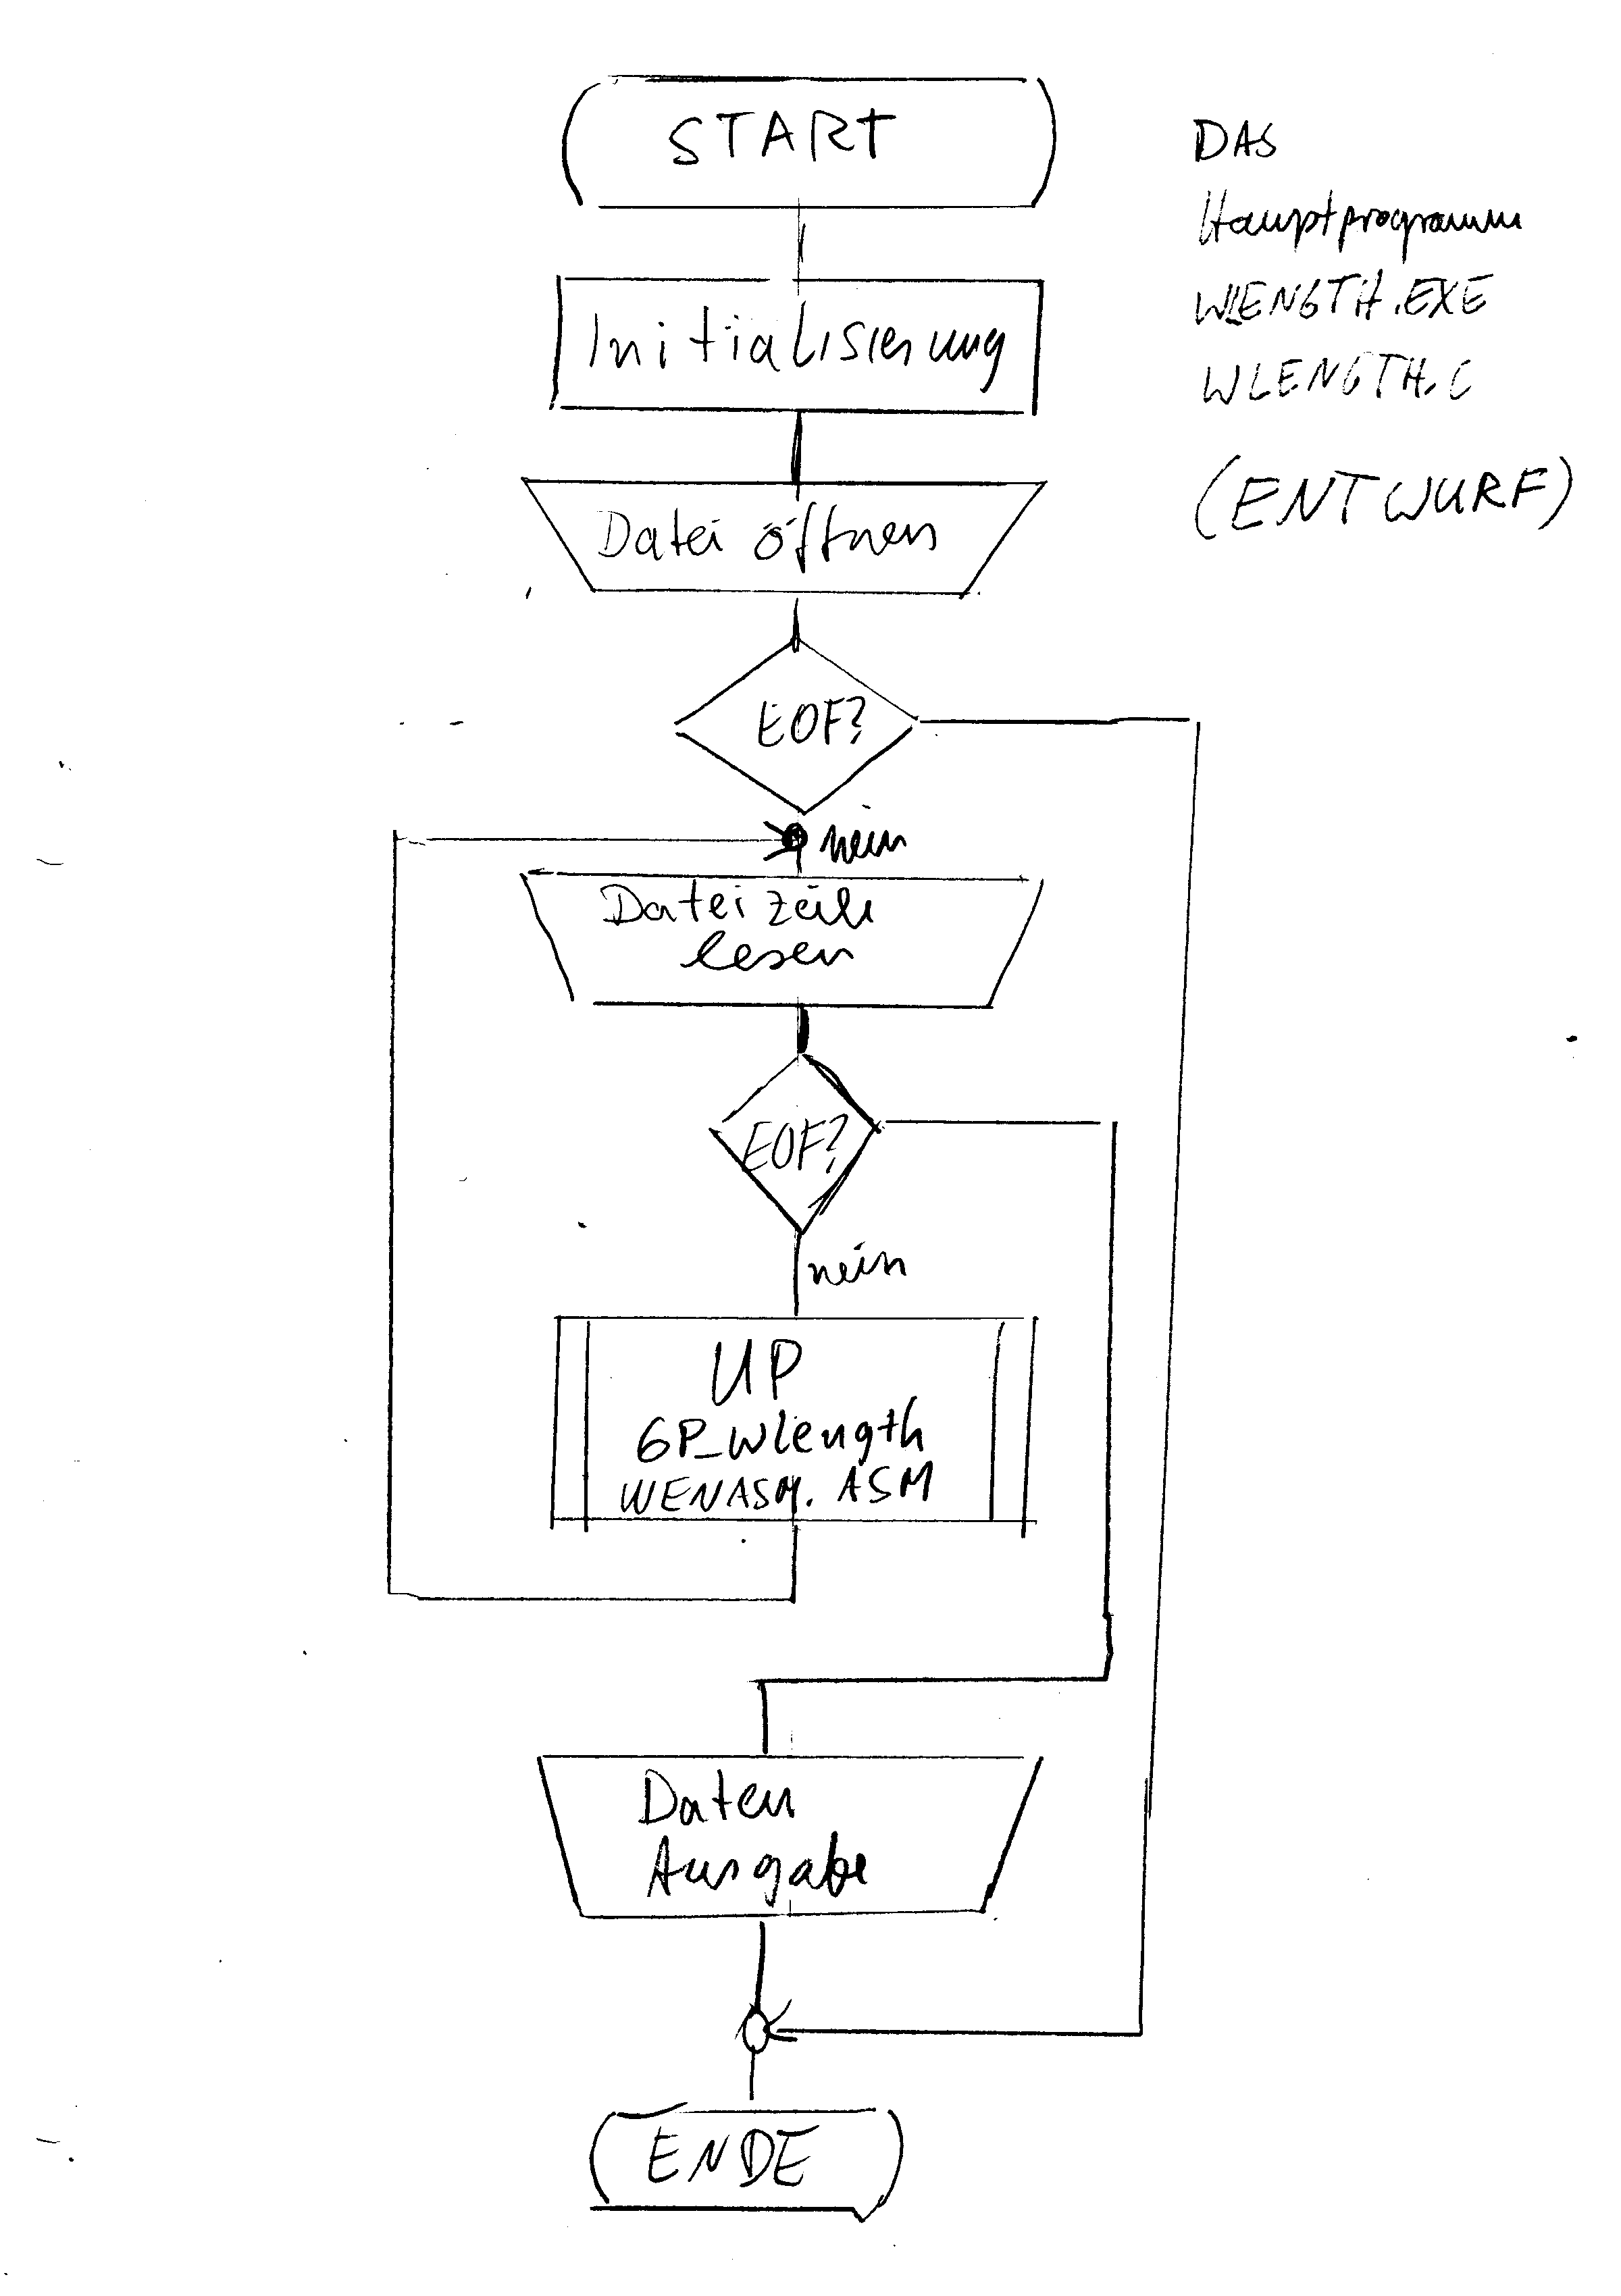 START
DAS
Hauptprogramm
WLENGTH.EXE
WLENGTH.C
(ENTWURF)
Initialisierung
Datei öffnen
EOF?
nein
Dateizeile
lesen
EOF?
nein
UP
GP_wlength
WENASM.ASM
Daten
Ausgabe
ENDE